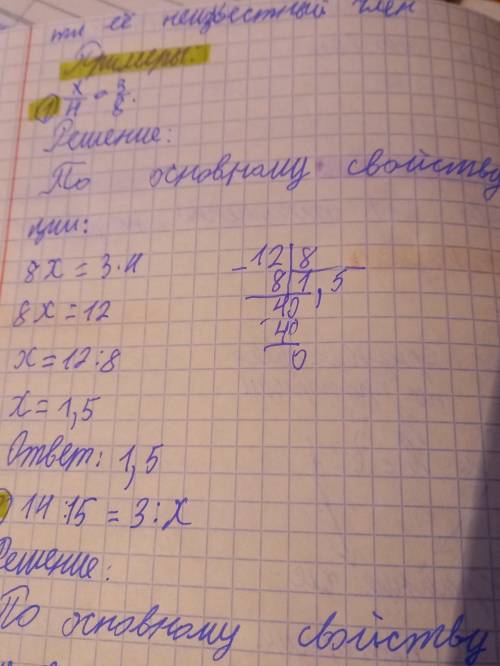 ти её неизвестный член
Примеры:
1) x/4 = 3/8.
Решение:
По основному свойству
ции:
8x = 3·4
8x = 12
x = 12:8
x = 1,5
Ответ: 1,5
12 | 8
8 | 1,5
40
40
0
14:15 = 3:x
Решение:
По основному свойству